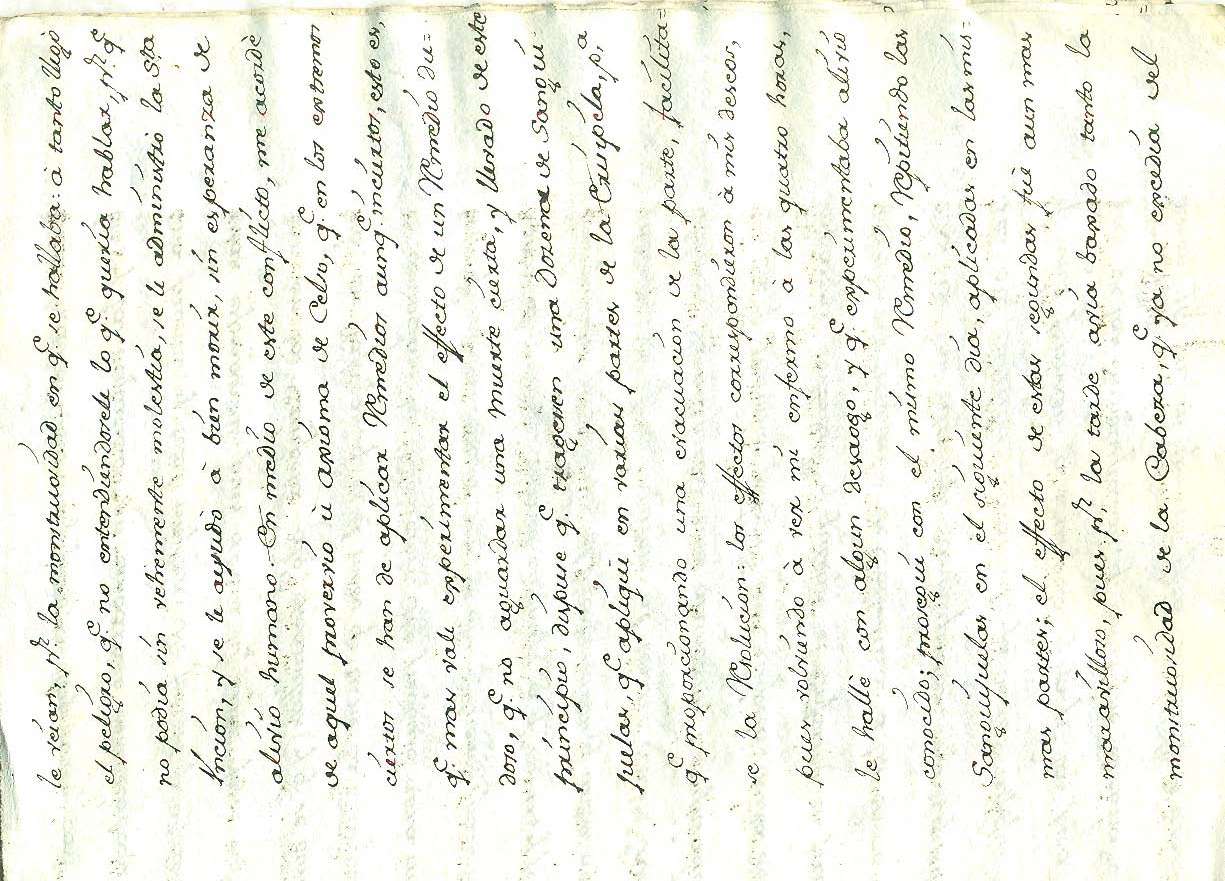 le veían, pr. la monstruosidad en qe. se hallaba: à tanto llegó
el peligro, qe. no entendiendosele lo qe. quería hablar, pr. qe.
no podía sin vehemente molestia, se le administró la Sta.
Unción, y se le ayudò à bien morir, sin esperanza de
alivio humano. En medio de este conflicto, me acordè
de aquel proverbio ù axioma de Celso, qe. en los extremos
ciertos se han de aplicar Remedios aunqe. inciertos, esto es,
qe. mas vale experimentar el effecto de un Remedio du=
doso, qe. no aguardar una muerte cierta, y llevado de este
principio, dispuse qe. tragesen una Dosena de Sangui-
juelas, qe. apliqué en varias partes de la Erisipela, pa.
qe. proporcionando una evacuacion de la parte, facilita=
se la Resolucion: los effectos correspondieron à mis deseos,
pues volviendo à ver mi enfermo à las quatro horas,
le hallè con algun desaogo, y qe. experimentaba alivio
conocido; proseguí con el mismo Remedio, Repitiendo las
Sanguijuelas en el siguiente día, aplicadas en las mis=
mas partes; el effecto de estas segundas fuè aun mas
maravilloso, pues pr. la tarde avía baxado tanto la
monstruosidad de la Cabeza, qe. ya no excedía del